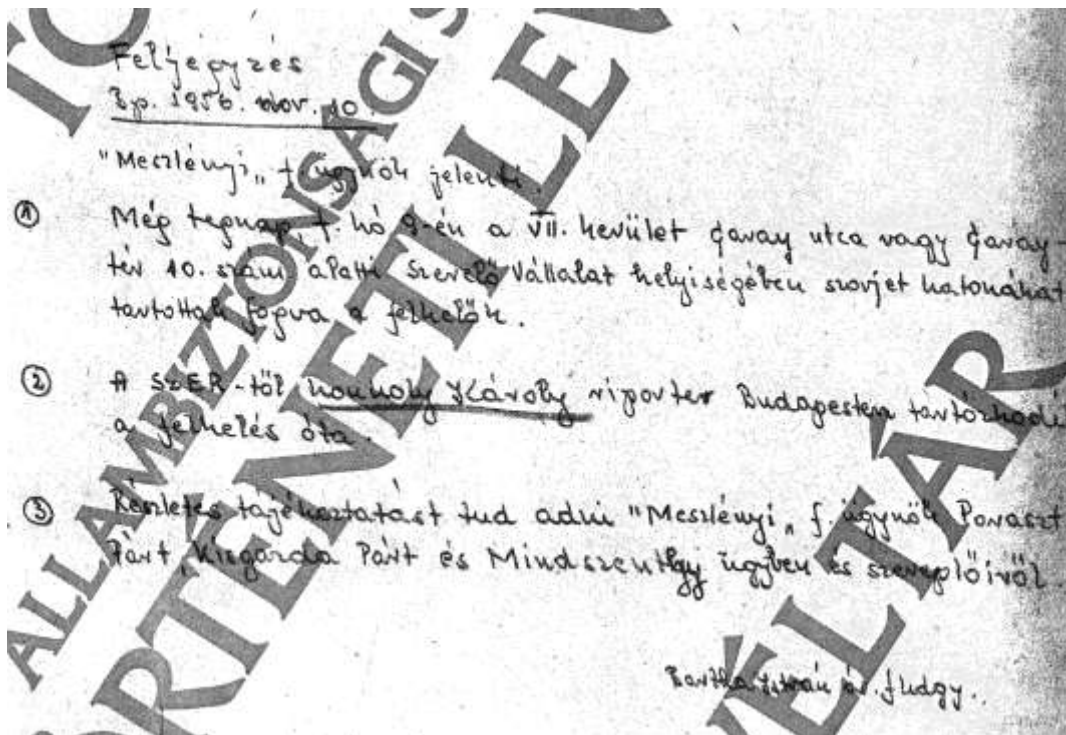 Feljegyzés
Bp. 1956. nov. 10.
"Meszlényi„ f. ügynök jelenti.
① Még tegnap f. hó 9-én a VII. kerület Garay utca vagy Garay-
tér 10. szám alatti Szerelő Vállalat helyiségében szovjet katonákat
tartottak fogva a felkelők.
② A SZER-től Konkoly Károly riporter Budapesten tartózkodi
a felkelés óta.
③ Részletes tájékoztatást tud adni "Meszlényi„ f. ügynök Paraszt
Párt, Kisgazda Párt és Mindszenthy ügyben és szereplőiről.
Bartha István áv. fhdgy.
ÁLLAMBIZTONSÁGI S
TÖRTÉNETI LEVÉLTÁR